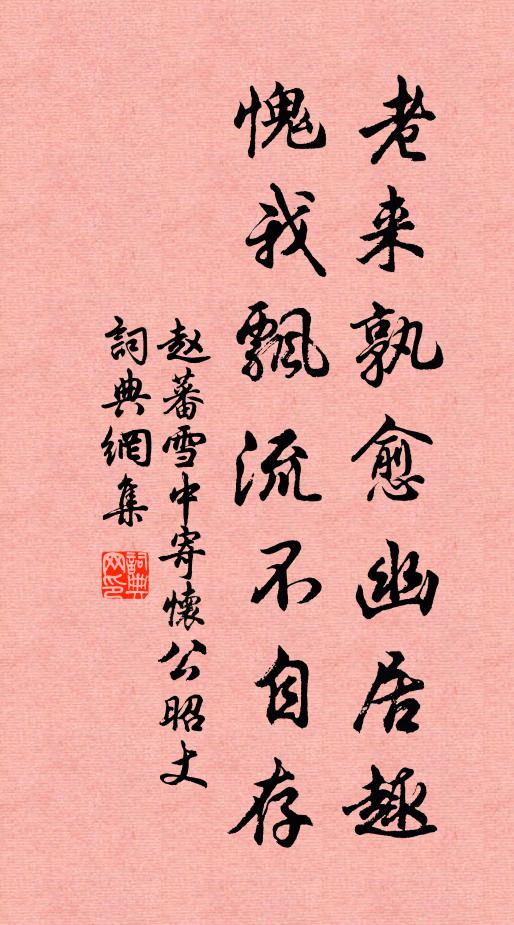 老来孰愈幽居趣
愧我飘流不自存
赵蕃雪中寄懷公昭丈
詞典網集
詞典網印